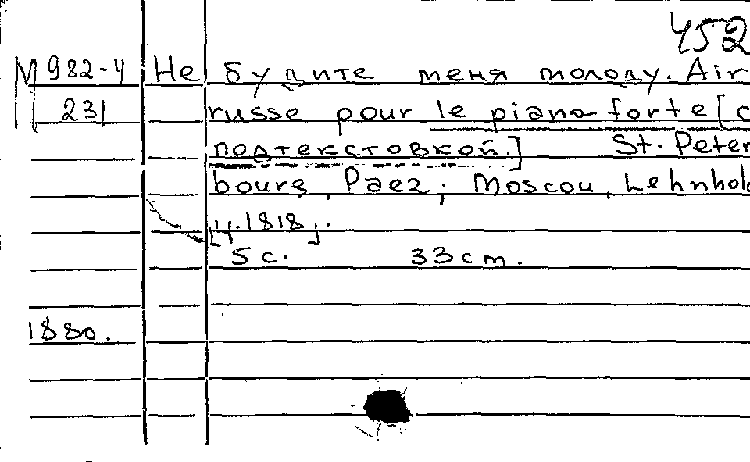 452
М 982-4 Не будите меня молоду. Air
231 russe pour le piano forte [с
подтекстовкой.] St. Peters
bourg, Paez; Moscou, Lehnhold
[ц.1818].
5 с. 33 cm.
1880.